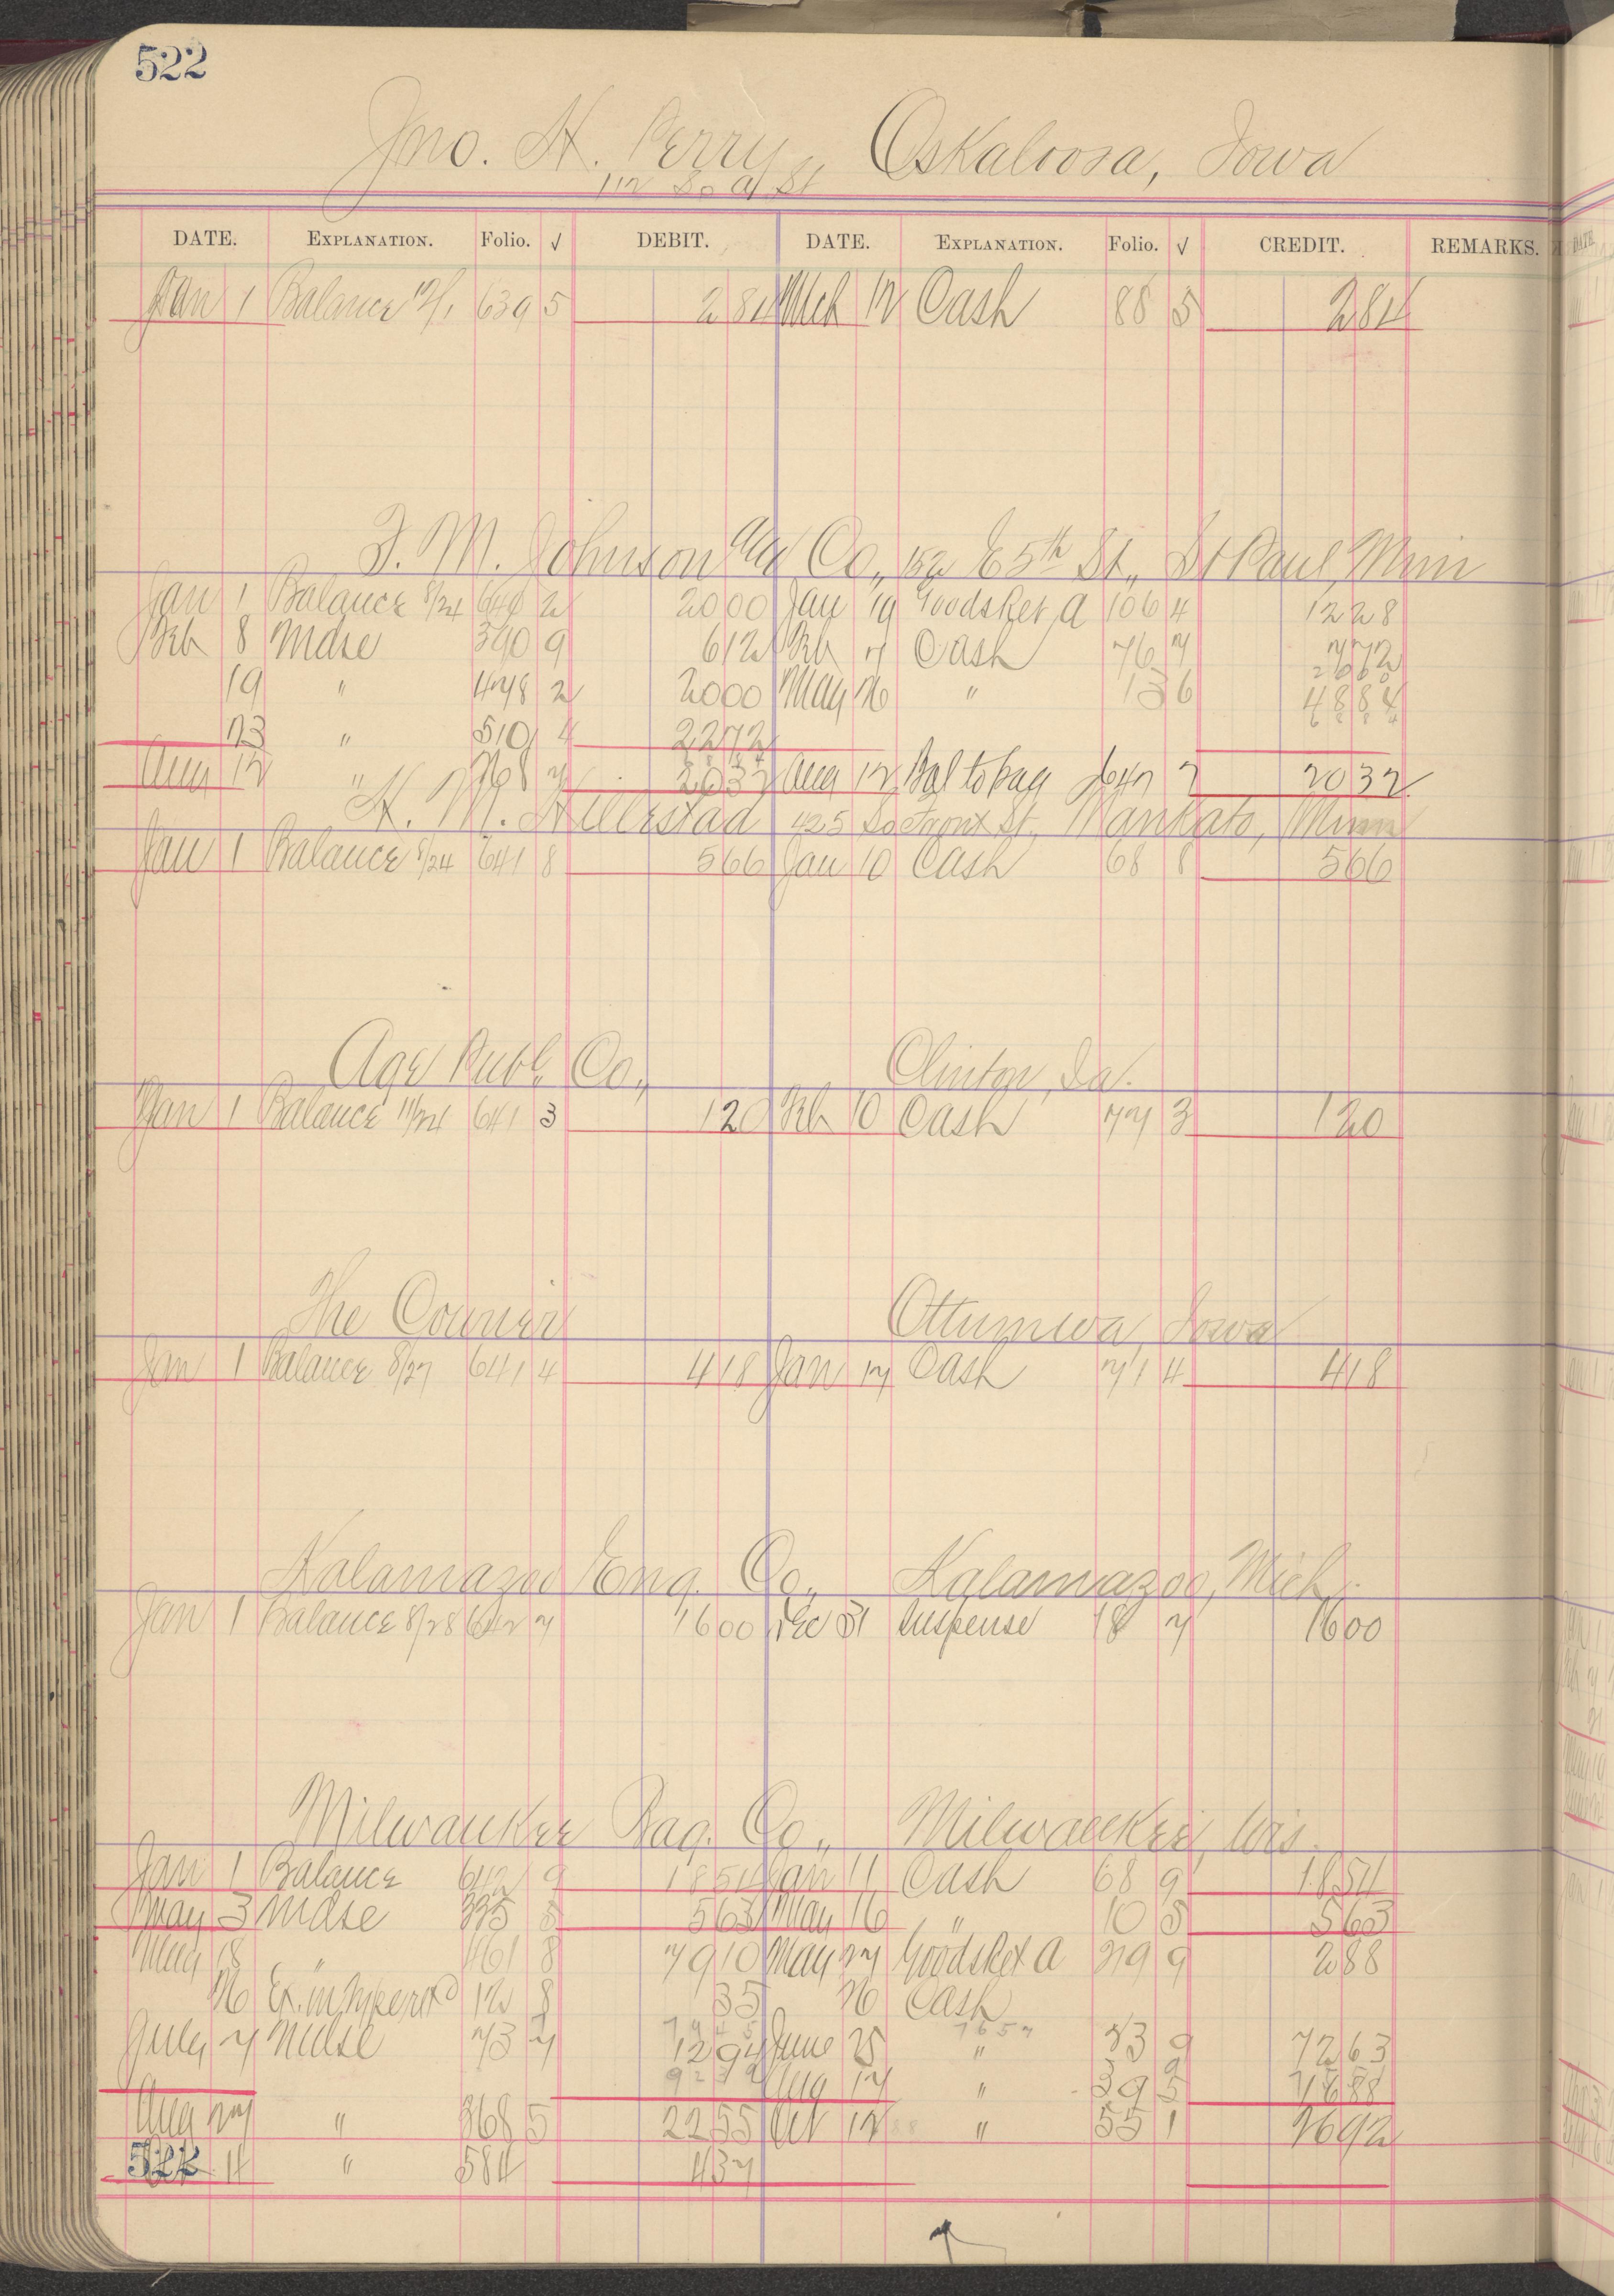 522
Jno. H. Perry, Oskaloosa, Iowa
112 So A St
DATE. EXPLANATION. Folio. √ DEBIT. DATE. EXPLANATION. Folio. √ CREDIT. REMARKS.
Jan 1 Balance 12/1 639 5 2 84 Mch 12 Cash 88 5 2 84
F. M. Johnson Co., 152 E 5th St., St Paul, Minn
Jan 1 Balance 8/24 640 2 20 00 Jan 19 Goods Ret A 106 4 12 28
Feb 8 Mdse 390 9 6 12 Feb 7 Cash 76 7 7 72
19 " 478 2 20 00 May 26 " 13 6 48 84
23 " 510 4 22 72
Aug 12 " 268 7 20 32 Aug 12 Bal to pag 647 7 20 32
H. M. Hillestad 425 So Front St., Mankato, Minn
Jan 1 Balance 8/24 641 8 5 66 Jan 10 Cash 68 8 5 66
Age Publ. Co., Clinton, Ia.
Jan 1 Balance 11/24 641 3 1 20 Feb 10 Cash 77 3 1 20
The Courier Ottumwa, Iowa
Jan 1 Balance 8/27 641 4 4 18 Jan 17 Cash 71 4 4 18
Kalamazoo Eng. Co., Kalamazoo, Mich.
Jan 1 Balance 8/28 642 7 16 00 Dec 31 Suspense 18 7 16 00
Milwaukee Bag. Co., Milwaukee, Wis.
Jan 1 Balance 642 9 18 54 Jan 11 Cash 68 9 18 54
May 3 Mdse 335 8 5 63 May 16 " 10 8 5 63
May 18 " 461 8 79 10 May 27 Goods Ret A 219 9 2 88
26 Ex. in 12 8 35 26 Cash
July 7 Mdse 73 7 12 94 June 25 " 23 9 72 63
Aug 17 " 39 5 16 88
Aug 27 " 368 5 22 55 Oct 12 " 55 1 26 92
522 4 " 584 4 37